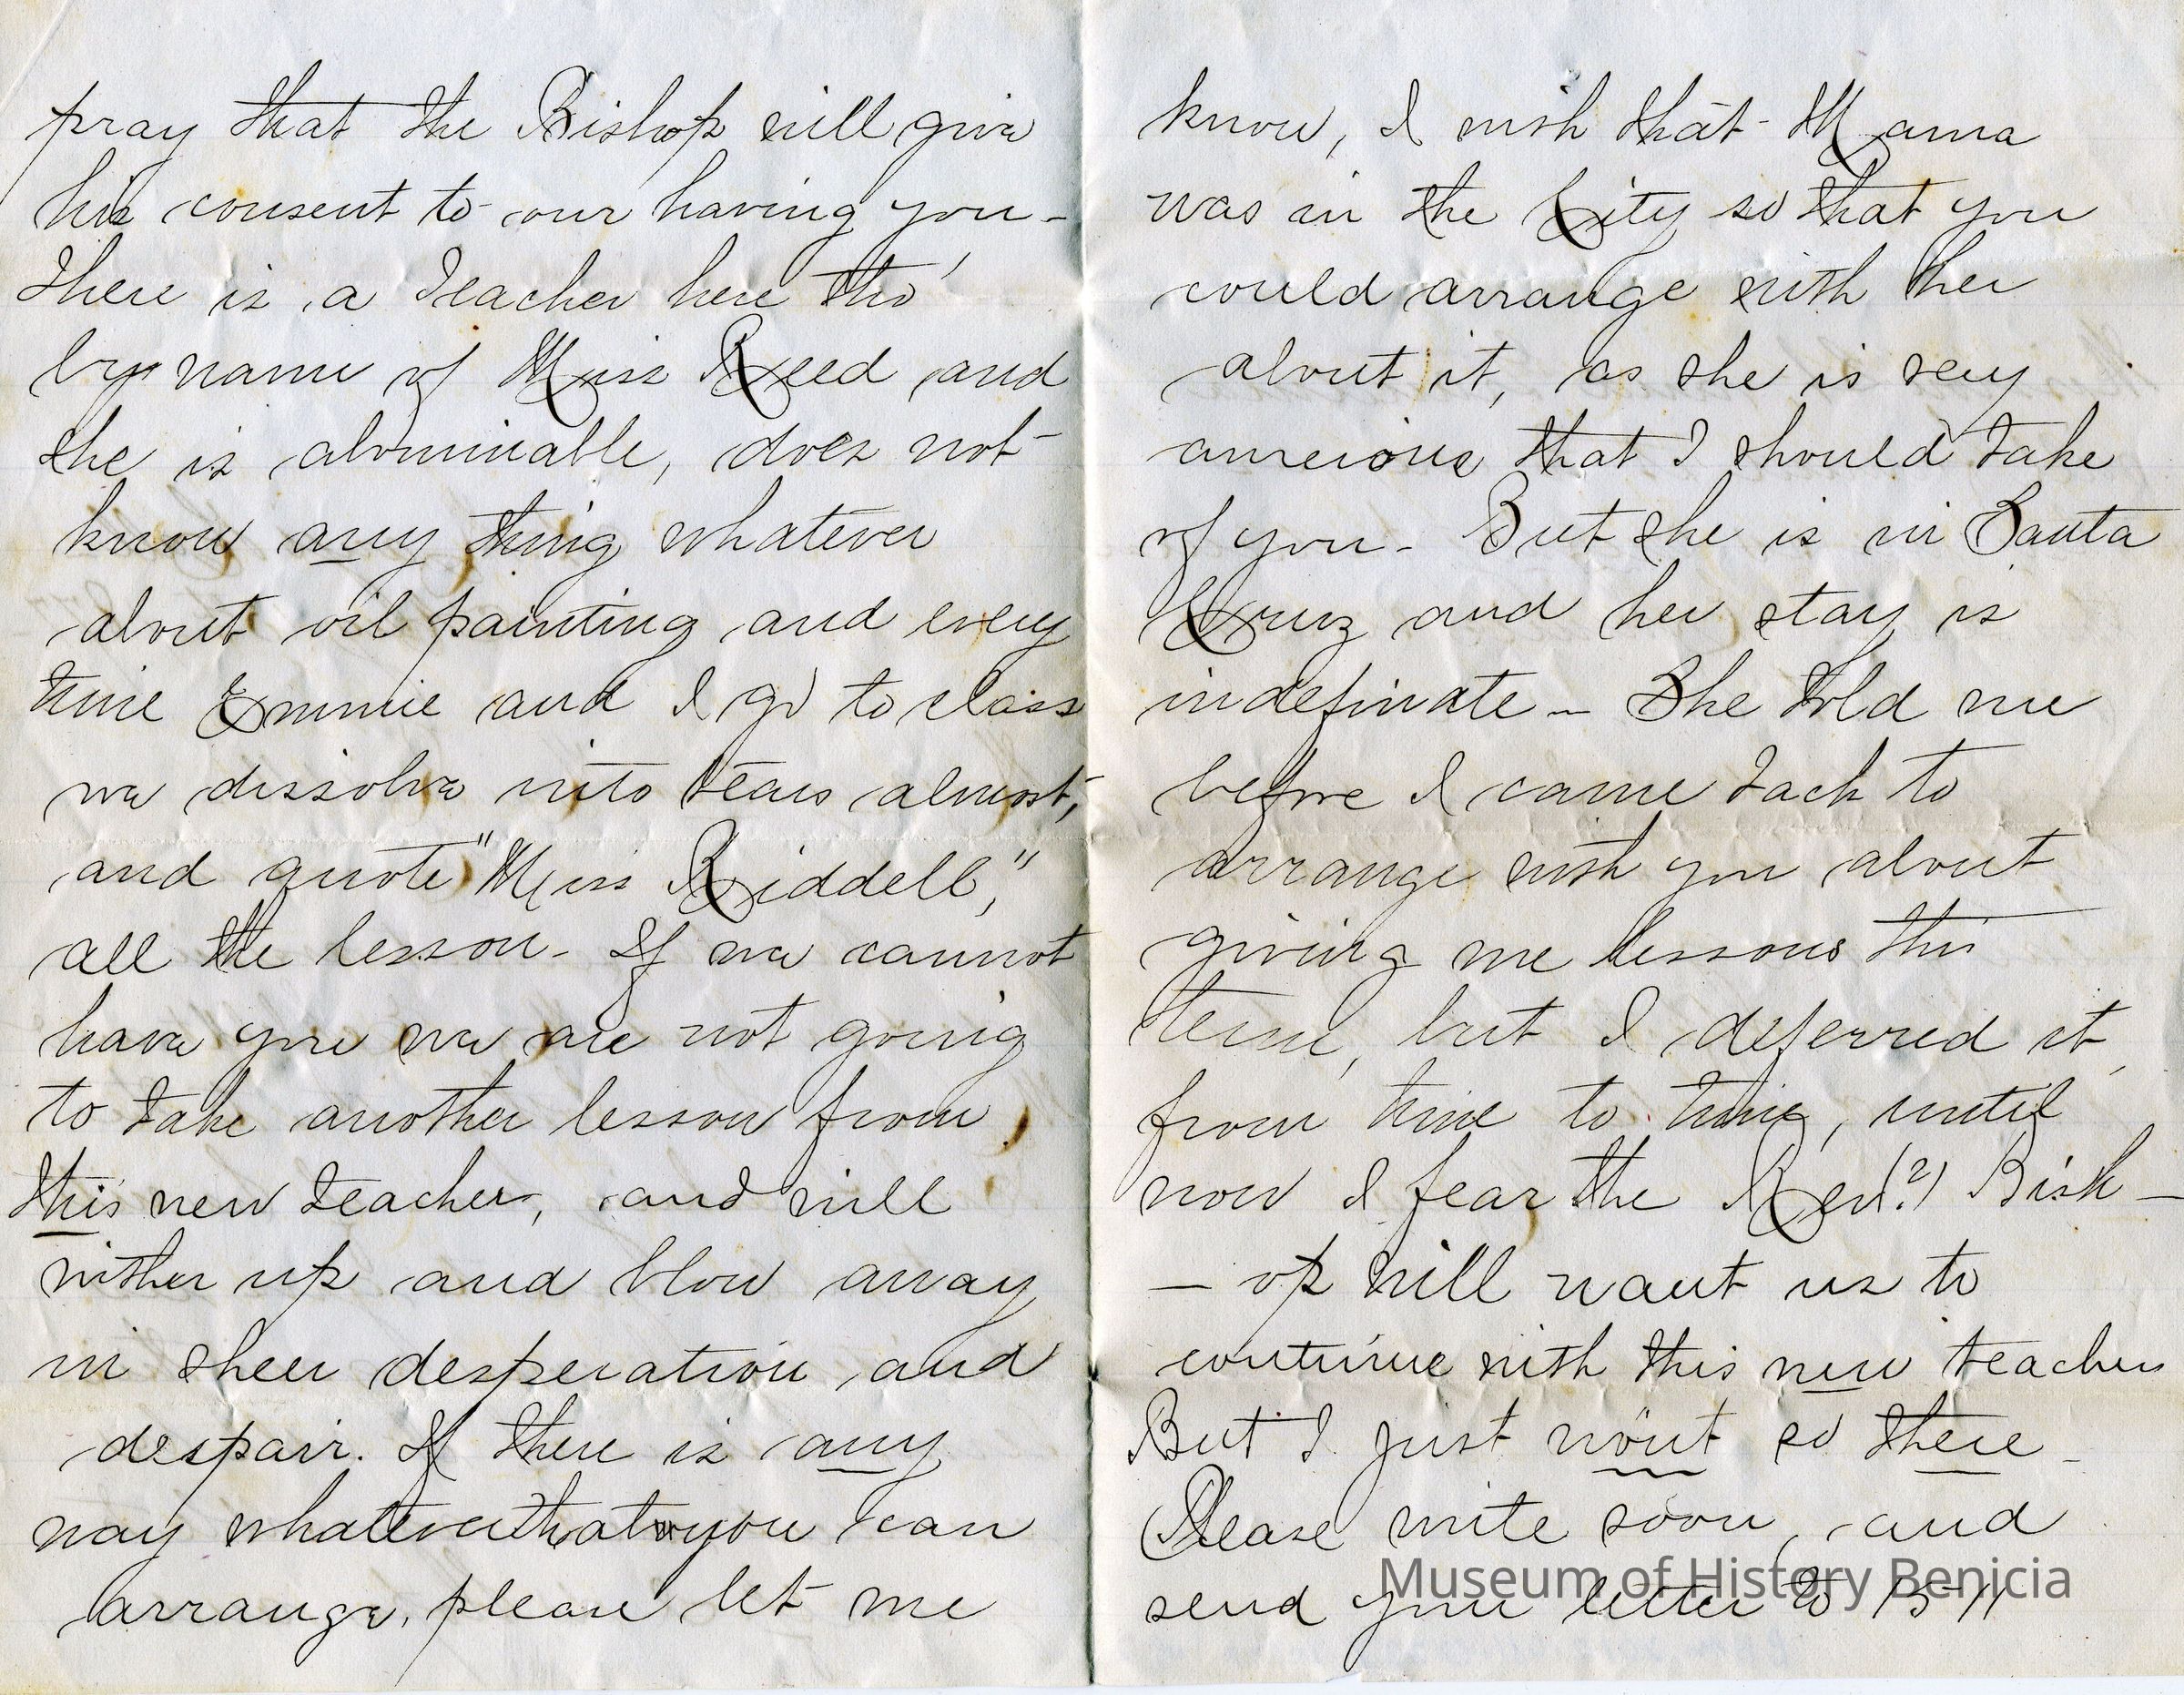 pray that the Bishop will give
his consent to our having you -
There is a Teacher here tho'
by name of Miss Reed and
she is abominable, does not
know any thing whatever
about oil painting and every
time Emmie and I go to class
we dissolve into tears almost,
and quote "Miss Riddell,"
all the lesson - If we cannot
have you we are not going
to take another lesson from
this new teacher, and will
wither up and blow away
in sheer desperation and
despair. If there is any
way whatever that you can
arrange, please let me
know, I wish that Mama
was in the City so that you
could arrange with her
about it, as she is very
anxious that I should take
of you - But she is in Santa
Cruz and her stay is
indefinate - She told me
before I came back to
arrange with you about
giving me lessons this
term, but I deferred it
from time to time, until
now I fear the Rev(?) Bish -
- op will want us to
continue with this new teacher
But I just wo'nt so there -
Please write soon, and
send your letter to 1511
Museum of History Benicia